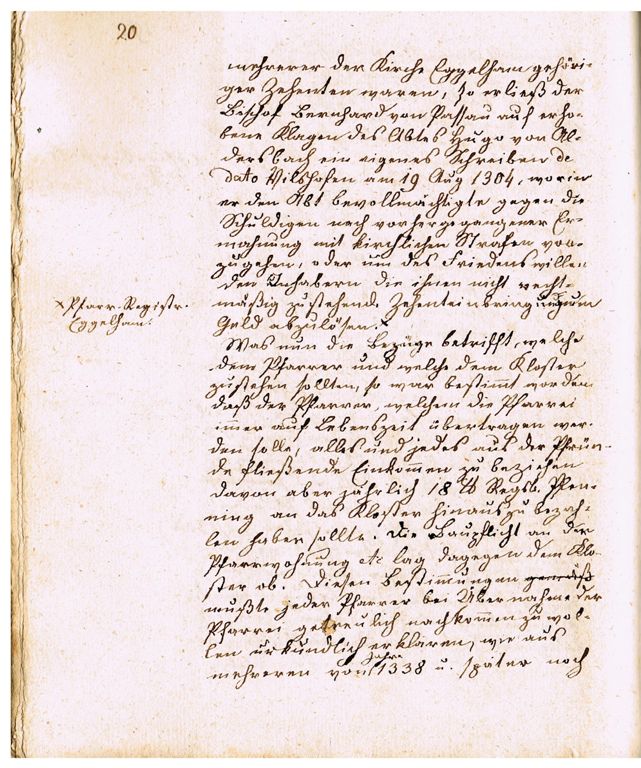 20
mehrerer der Kirche Eggelham gehöri-
ger Zehenten waren, so erließ der
Bischof Bernhard von Passau auf erho-
bene Klagen des Abtes Hugo von Al-
dersbach ein eigenes Schreiben de
dato Vilshofen am 19 Aug 1304, worin
er den Abt bevollmächtigte gegen die
Schuldigen nach vorhergegangener Er-
mahnung mit kirchlichen Strafen vor-
zugehen, oder um des Friedens willen
den Inhabern die ihnen nicht recht-
mäßig zustehende Zehenteinbringung um
Geld abzulösen.x
x Pfarr-Registr.
Eggelham.
Was nun die Bezüge betrifft, welche
dem Pfarrer und welche dem Kloster
zustehen sollten, so war bestimmt worden
daß der Pfarrer, welchem die Pfarrei
immer auf Lebenszeit übertragen wer-
den solle, alles und jedes aus der Pfrün-
de fließende Einkommen zu beziehen
davon aber jährlich 18 ℔ Regsb. Pfen-
ning an das Kloster hinauszubezah-
len haben sollte. Die Baupflicht an der
Pfarrwohnung etc lag dagegen dem Klo-
ster ob. Diesen Bestimmungen gemäß
mußte jeder Pfarrer bei Übernahme der
Pfarrei getreulich nachkommen zu wol-
len urkundlich erklären, wie aus
mehreren vom Jahre 1338 u. später noch